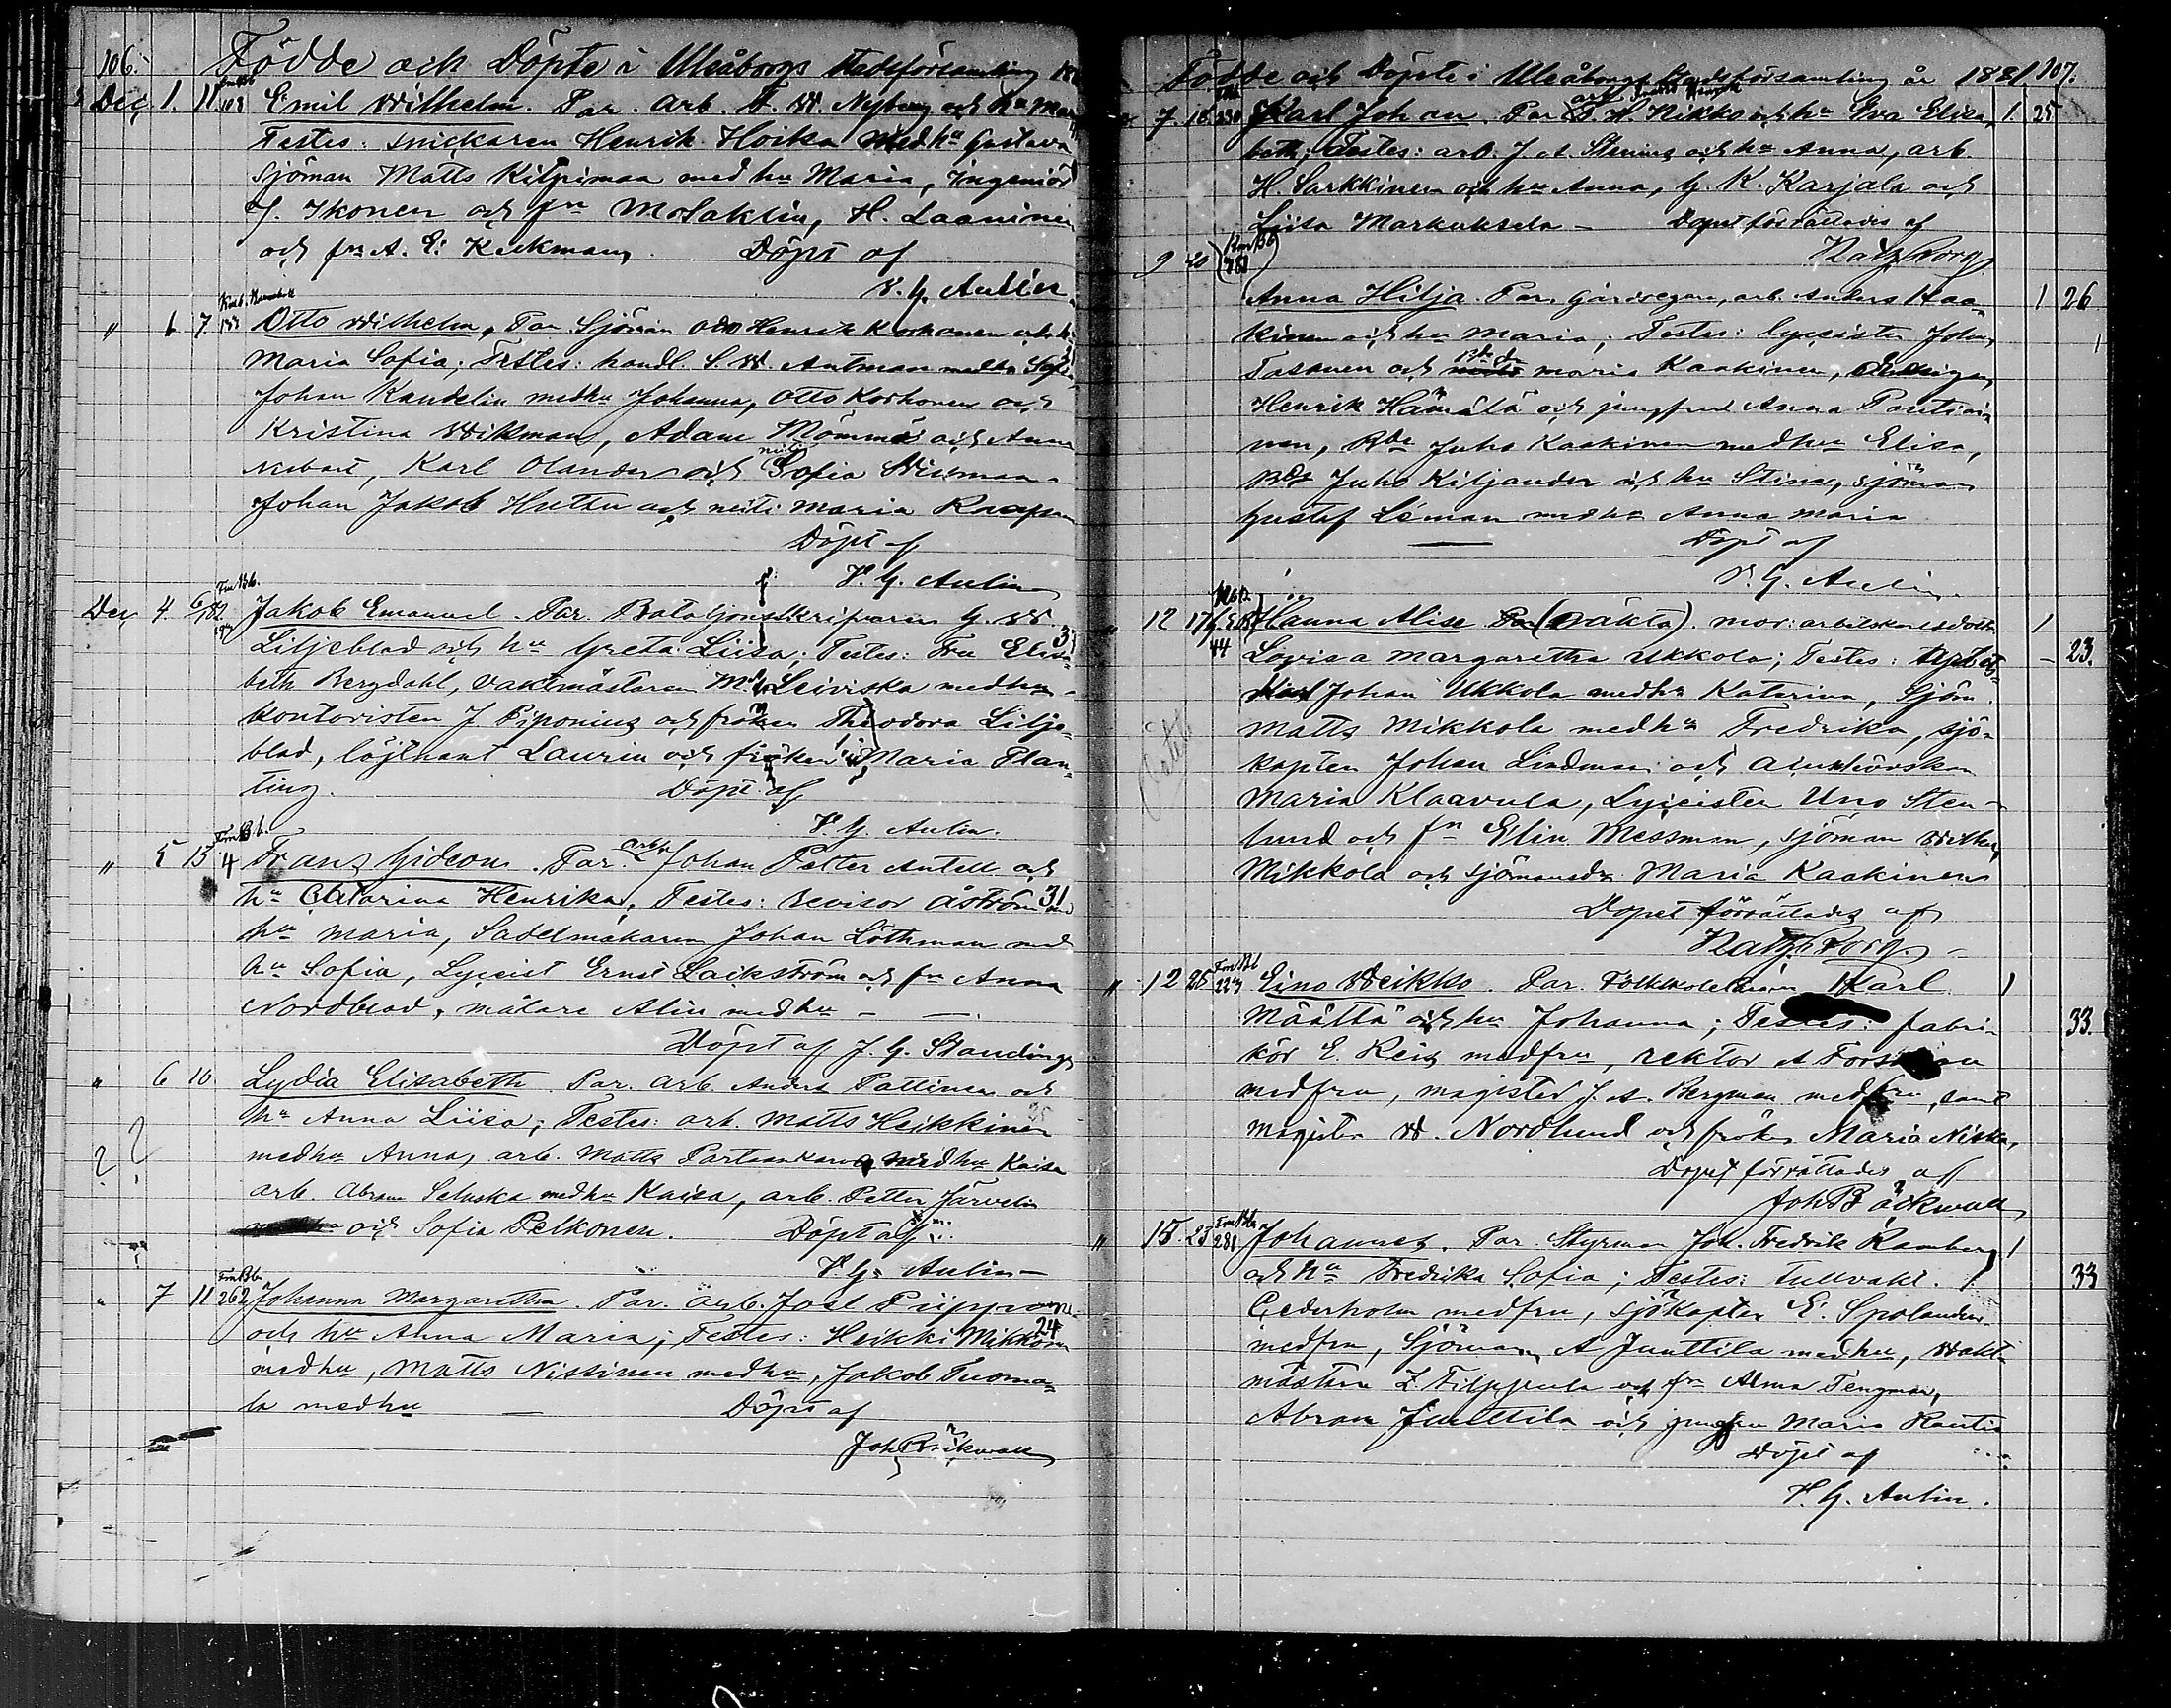 106.
Födde och Döpte i Uleåborgs Stadsförsamling
Dec. 1. 11. 108 Emil Wilhelm. Par. Arb. F. W. Nyberg och hu Mar
Testes: snickaren Henrik Hoikka med hu Gustava
Sjöman Matts Kilpimaa med hu Maria, Ingeniör
J. Ikonen och fru Molaklin, H. Laaninen
och frn A. E. Keckman. Döpt af
V. G. Aulin.
" 6 7 Otto Wilhelm, Par Sjöman Otto Henrik Korhonen och h:
Maria Sofia; Testes: handl. S. W. Antman med hu Sofia
Johan Kandelin med hu Johanna, Otto Korhonen och
Kristina Wikman, Adam Mömmö och Anna
Karl Olander och neiti Sofia
Johan Jakob Huttu och neiti Maria
Döpt af
V. G. Aulin
Dec. 4. 6/1 82. Jakob Emanuel. Par. Bataljonsskrifvaren G. W.
Liljeblad och hu Greta Liisa; Testes: Fru Elisa 31
beth Bergdahl, Vaktmästaren M. Leiviska med hu
kontoristen J Piponius och fröken Theodora Lilje-
blad, löjtnant Laurin och fröken Maria Plan-
ting. Döpt af
V. G. Aulin.
" 5 15 4 Frans Gideon. Par. arb. Johan Petter Antell och
hu Catarina Henrika; Testes: Revisor Åström med 31
hu Maria, Sadelmakaren Johan Löthman med
hu Sofia, Lyceist Ernst Lackström och frn Anna
Nordblad, målare Alin med hu —
Döpt af J. G. Standing
" 6 10. Lydia Elisabeth Par. Arb. Anders Pattinen och
hu Anna Liisa; Testes: arb. Matts Heikkinen 25
? ? med hu Anna, arb. Matts med hu Kaisa
arb. Abram med hu Kaisa, arb. Petter Järvelin
och Sofia Pelkonen. Döpt af
V. G. Aulin —
" 7. 11 262 Johanna Margaretha. Par. Arb. Joel Piipponen
och hu Anna Maria; Testes: Heikki Mikkonen 24
med hu, Matts Nissinen med hu, Jakob Tuoma-
la med hu — Döpt af
Joh Bäckwall
Födde och Döpte i Uleåborgs Stadsförsamling år 1881. 107.
7. 18. 230 Karl Johan. Par arb. Anders Henrik Nikko och hu Eva Elisa- 1 25
beth; Testes: arb. J. A. Stenius och hu Anna, arb.
H. Sarkkinen och hu Anna, G. K. Karjala och
Liisa Markuksela — Dopet förrättades af
Natz. Borg
9 20 781
Anna Hilja. Par. gårdsegare, arb. Anders Kaa- 1 26
kinen och hu Maria; Testes: lyceisten John
Tasanen och Maria Kaakinen,
Henrik Hämälä och jungfru Anna Pantsi-
nen, Bde Juho Kaakinen med hu Elisa,
Bde Juho Kiljander och hu Stina, sjöman
Gustaf Leman med hu Anna Maria
— Döpt af
V. G. Aulin.
" 12 17 44 Hanna Alise (oäkta). mor: arbetskarlsdottr 1
Lovisa Margaretha Ukkola; Testes: — 23.
Karl Johan Ukkola med hu Katarina, Sjöm.
Matts Mikkola med hu Fredrika, sjö-
kapten Johan Lindman och
Maria Klaavula, Lyceisten Uno Sten-
lund och frn Elin Messman, sjöman Wilhe.
Mikkola och sjömansdr Maria Kaakinen
Dopet förrättades af
Natz. Borg. —
" 12 25 227 Eino Weikko. Par. Folkskoleläraren Karl 1
Määttä och hu Johanna; Testes: fabri- 33.
kör E. Reis med fru, rektor A Forsman
med fru, magister J. A. Bergman med fru, samt
magister W. Nordlund och fröken Maria Niska,
Dopet förrättades af
Joh Bäckwall
" 15. 23 281 Johannes. Par. Styrman Joh. Fredrik Ramberg 1
och hu Fredrika Sofia; Testes: Tullvakt. J. 33
Cederholm med fru, sjökapten E. Spolander
med fru, Sjöman A Junttila med hu, Wakt-
mästare Z. Filppula och frn Alma Tengman,
Abram Junttila och jungfru Maria Rautio
Döpt af
V. G. Aulin.